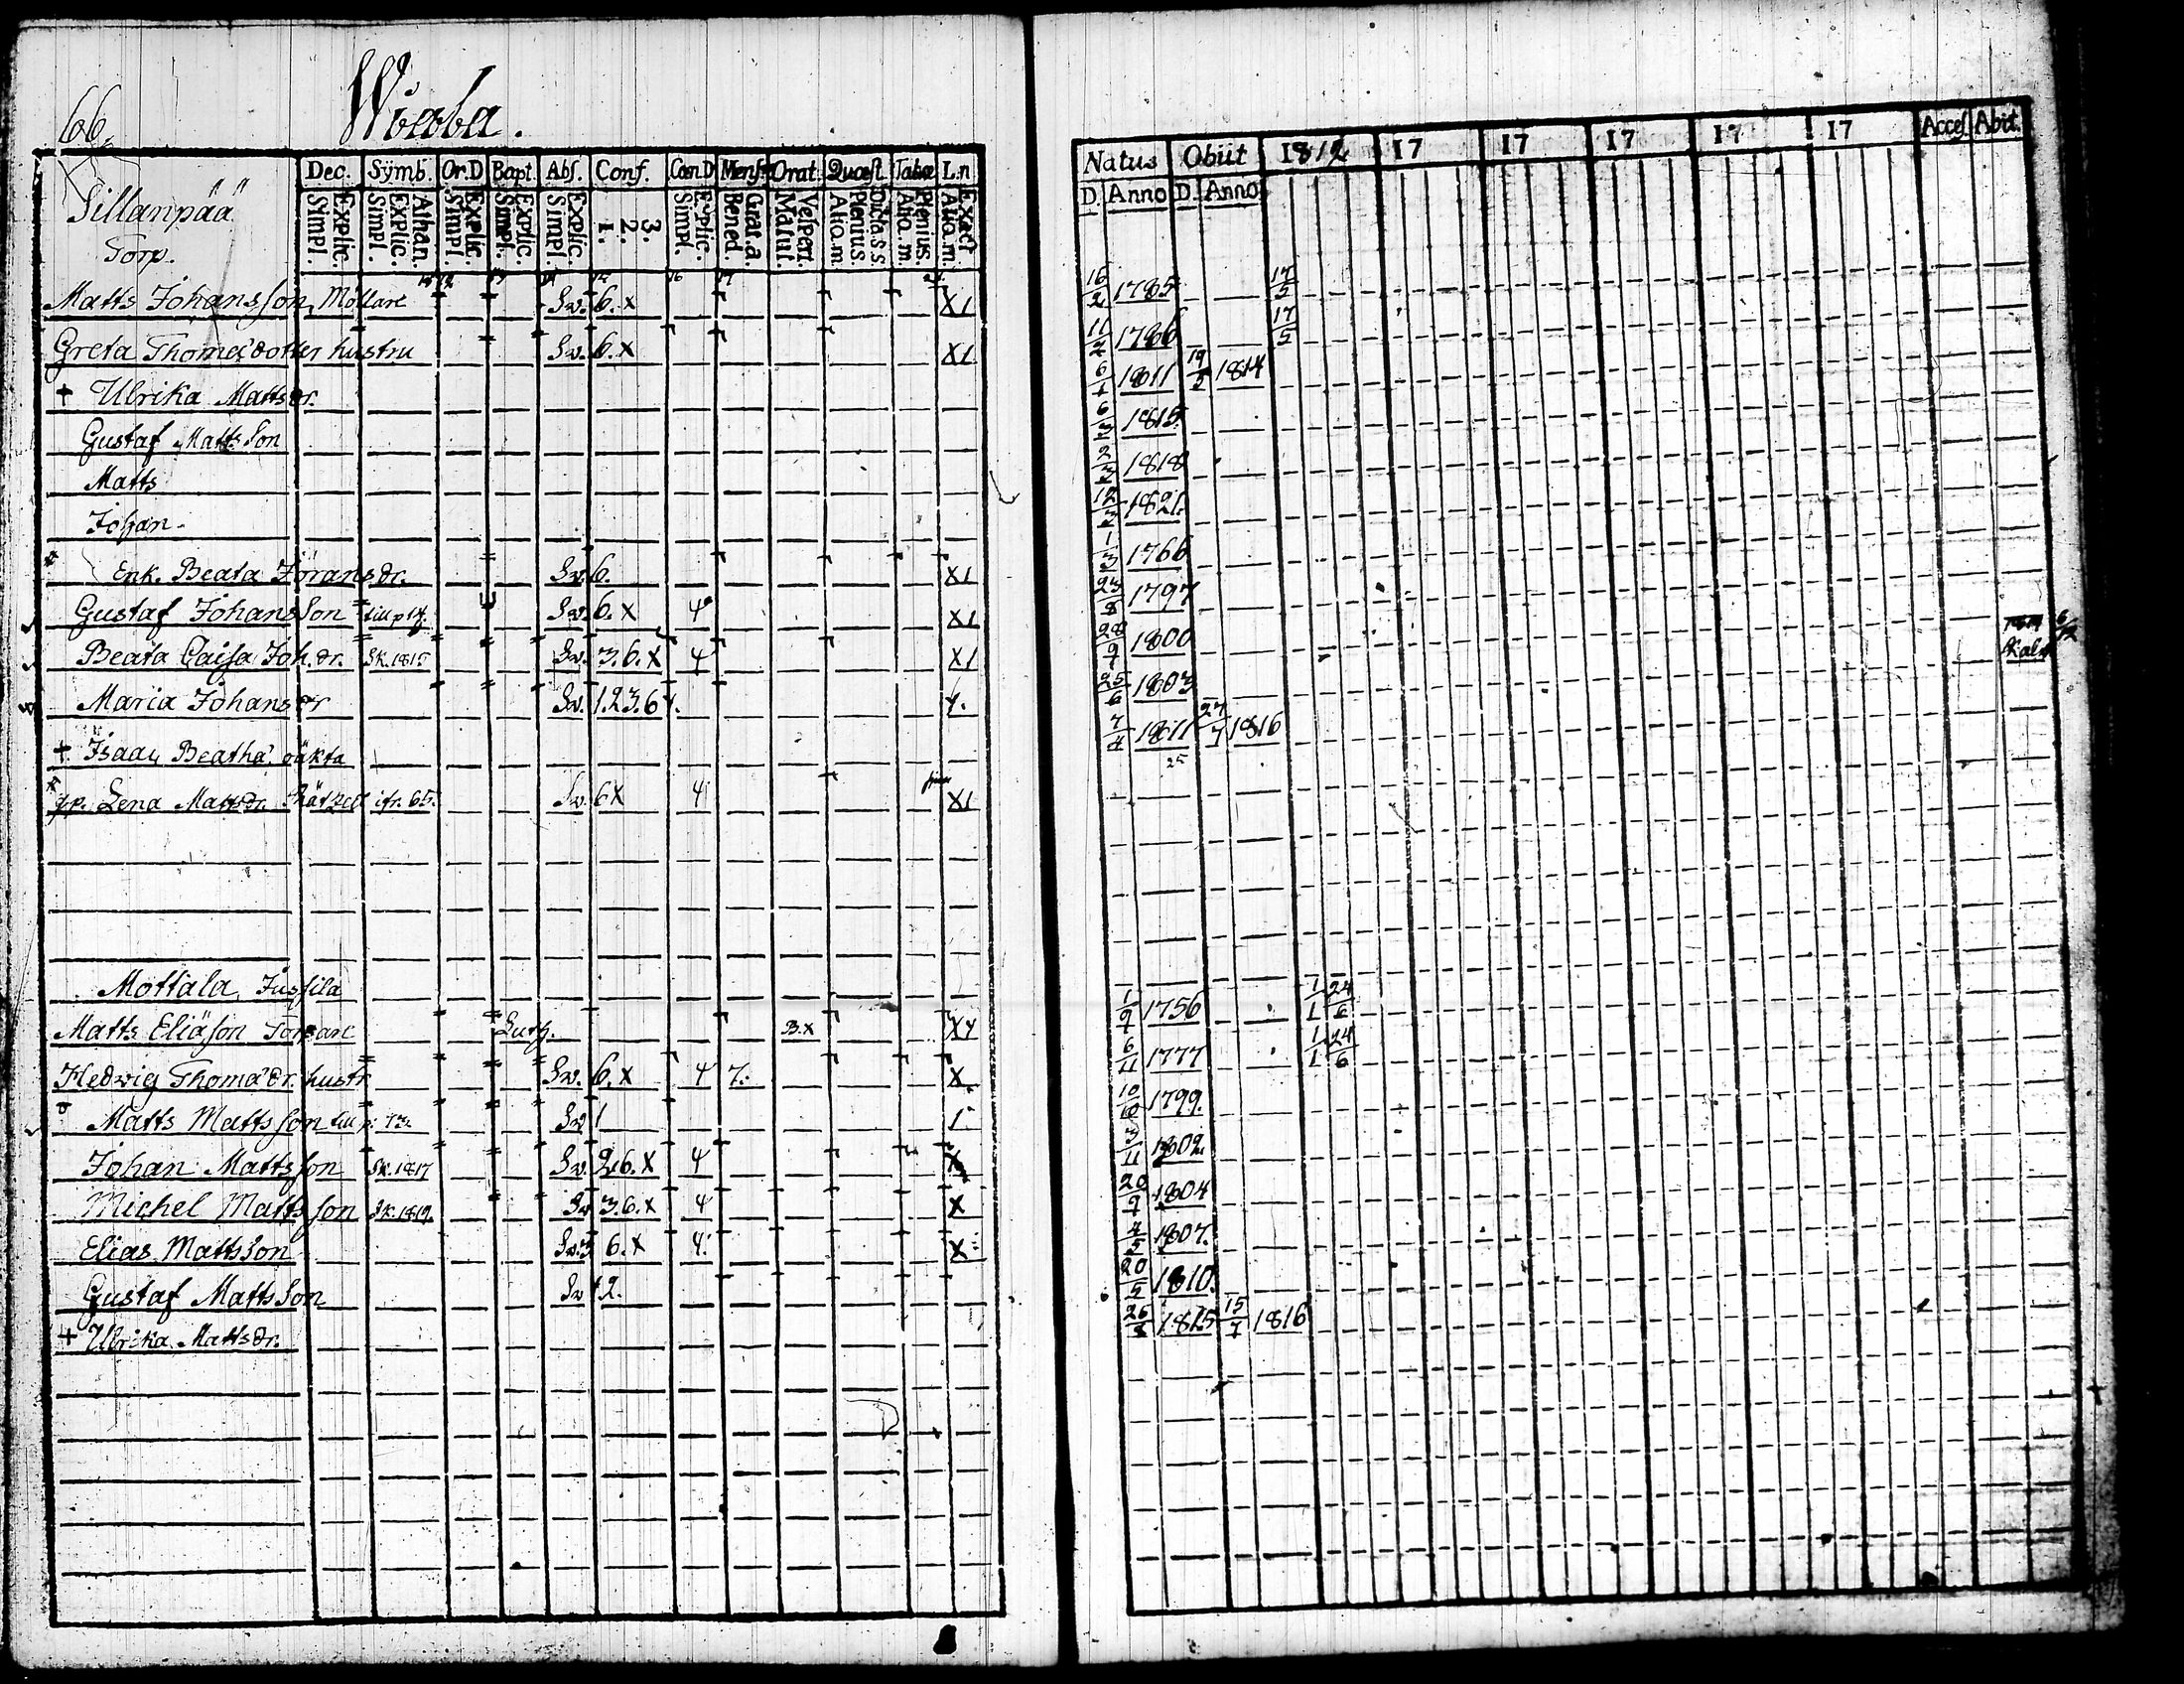 66.
Wiaala.
Dec. Symb. Or.D Bapt. Abs. Conf. Can.D Mens. Orat. Quæst. Tabæ L.n
Explic. Simpl. Athan. Explic. Simpl. Explic. Simpl. Explic. Simpl. Explic. Simpl. 3. 2. 1. Explic. Simpl. Grat.a. Bened. Vespert. Matut. Dicta s.s. Plenius. Aliq.m. Plenius. Aliq.m. Exact Aliq.m.
Sillanpää
Torp.
Matts Johansson, Möllare Sv. 6. x X1
Greta Thomæ dotter hustru Sv. 6. X X1
+ Ulrika Mattsdr.
Gustaf Mattsson
Matts
Johan
Enk. Beata Jöransdr. Sv. 6. X1
Gustaf Johansson till p 14. Sv. 6. X 4 X1
Beata Caisa Joh. dr. Sk. 1815 Sv. 3. 6. X 4 X1
Maria Johansdr Sv. 1. 2 3. 6
+ Isaac Beathæ oäkta
Lena Mattsdr. ifr. 65. Sv. 6 X 4 X1
Mottala Jussila
Matts Eliæson Torpare B. x
Hedwig Thomædr. hustr Sv. 6. X 4 7. X
Matts Mattsson till p. 73. Sv 1 1
Johan Mattsson Sk. 1817 Sv. 2. 6. X 4 X
Michel Mattsson Sk. 1819. Sv 3. 6. X 4 X
Elias Mattsson Sv. 3 6. X 4. X
Gustaf Mattsson Sv 2.
+ Ulrika Mattsdr.
Natus Obiit 1812 17 17 17 17 17 Acces. Abit.
D. Anno D. Anno
16/2 1785 17/5
11/2 1786 17/5
6/1 1811 19/5 1814
1815.
1818
1821.
1/3 1766
23/8 1797
28/9 1800
25/6 1803
7/4 1811 27/7 1816
25
1/9 1756 1/1 24/6
6/11 1777 1/1 24/6
10/10 1799.
3/11 1802.
20/9 1804
4/5 1807.
20/5 1810.
1815 15/7 1816